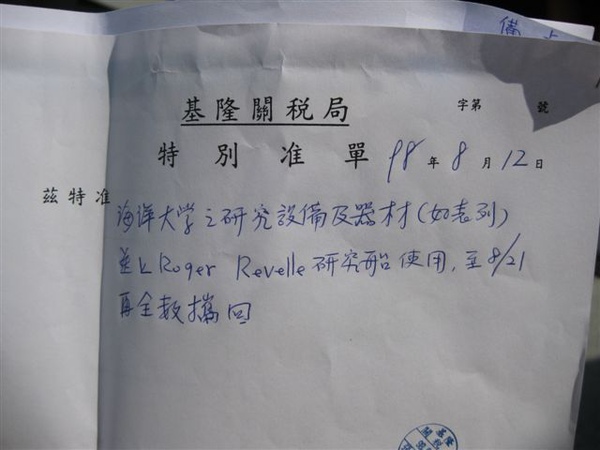 備
基隆關稅局
字第 號
特別准單 98年8月12日
茲特准 海洋大学之研究設備及器材(如表列)
並上 Roger Revelle 研究船使用,至8/21
再全数攜回
基隆
關稅